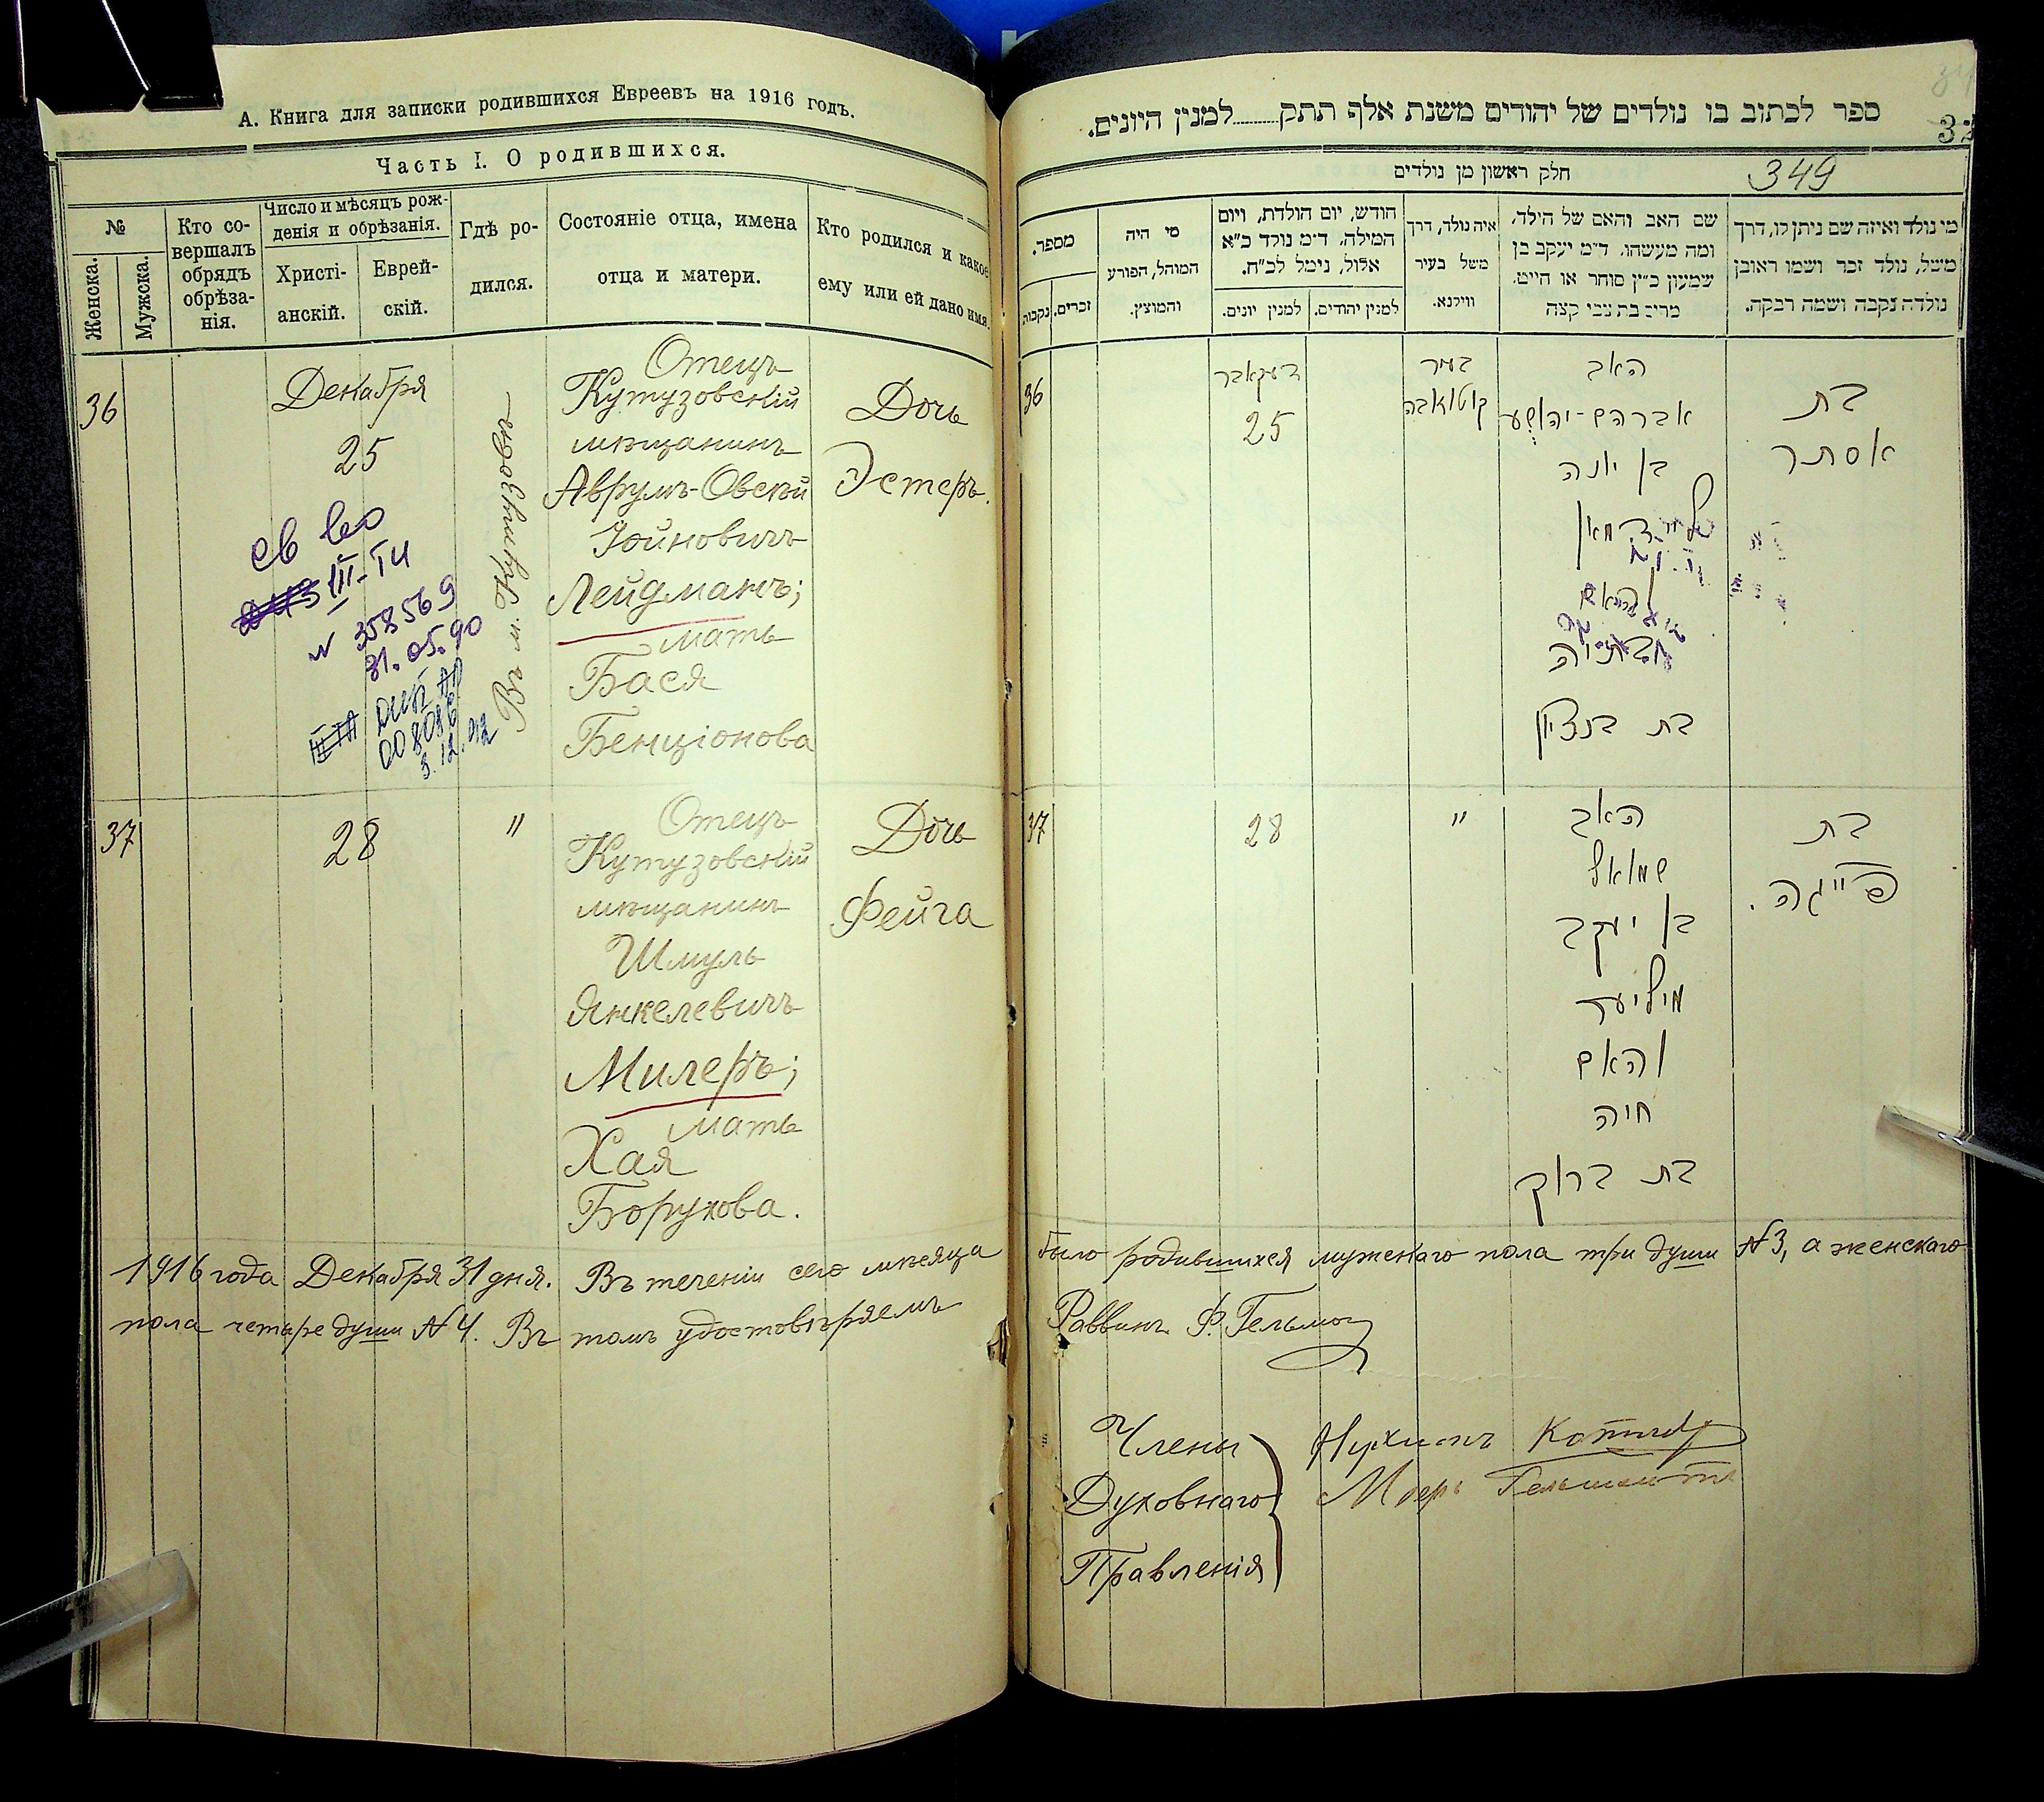 А. Книга для записки родившихся Евреевъ на 1916 годъ.
Часть I. О родившихся.
№
Женска.
Мужска.
Кто со-
вершалъ
обрядъ
обрѣза-
нія.
Число и мѣсяцъ рож-
денія и обрѣзанія.
Христі-
анскій.
Еврей-
скій.
Гдѣ ро-
дился.
Состояніе отца, имена
отца и матери.
Кто родился и какое
ему или ей дано имя.
36
Декабря
25
Въ м. Кутузовѣ
Отецъ
Кутузовскій
мѣщанинъ
Аврумъ-Овсѣй
Іойновичъ
Лейдманъ;
мать
Бася
Бенціонова
Дочь
Эстеръ.
III-ТИ
N 358569
31.05.90
3.12.92
37
28
"
Отецъ
Кутузовскій
мѣщанинъ
Шмуль
Янкелевичъ
Милеръ;
мать
Хая
Борухова.
Дочь
Фейга
1916 года Декабря 31 дня. Въ теченіи сего мѣсяца
пола четыре души № 4. Въ томъ удостовѣряемъ
ספר לכתוב בו נולדים של יהודים משנת אלף תתק........למנין היונים.
חלק ראשון מן נולדים
349
מספר.
זכרים.
נקבות
מי היה
המוהל, הפורע
והמוצץ.
חודש, יום הולדת, ויום
המילה, ד״מ נולד כ״א
אלול, נימל לכ״ח.
למנין יונים.
למנין יהודים.
איה נולד, דרך
משל בעיר
ווילנא.
שם האב והאם של הילד,
ומה מעשהו, ד״מ יעקב בן
שמעון כ״ץ סוחר או חייט,
מרים בת צבי קצב
מי נולד ואיזה שם ניתן לו, דרך
משל, נולד זכר ושמו ראובן
נולדה נקבה ושמה רבקה.
36
דעקאבר
25
בעיר
קוטוזאבה
האב
אברהם-יהושע
בן יונה
ליידמאן
והאם
בת בנציון
בת
אסתר
37
28
"
האב
שמואל
בן יעקב
מיליער
והאם
חיה
בת ברוך
בת
פייגה.
было родившихся мужскаго пола три души № 3, а женскаго
Раввинъ Ф. Гельман
Члены
Духовнаго
Правленія